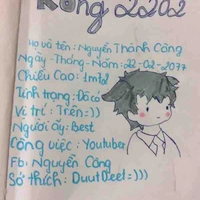 Rồng 2202
Họ và tên: Nguyễn Thành Công
Ngày-Tháng-Năm: 22-02-2077
Chiều Cao: 1m72
Tình trạng: Đã có
Vị trí: Trên:))
Người ấy: Best
Công việc: Youtuber
Fb: Nguyễn Công
Sở thích: DuutDeel=)))